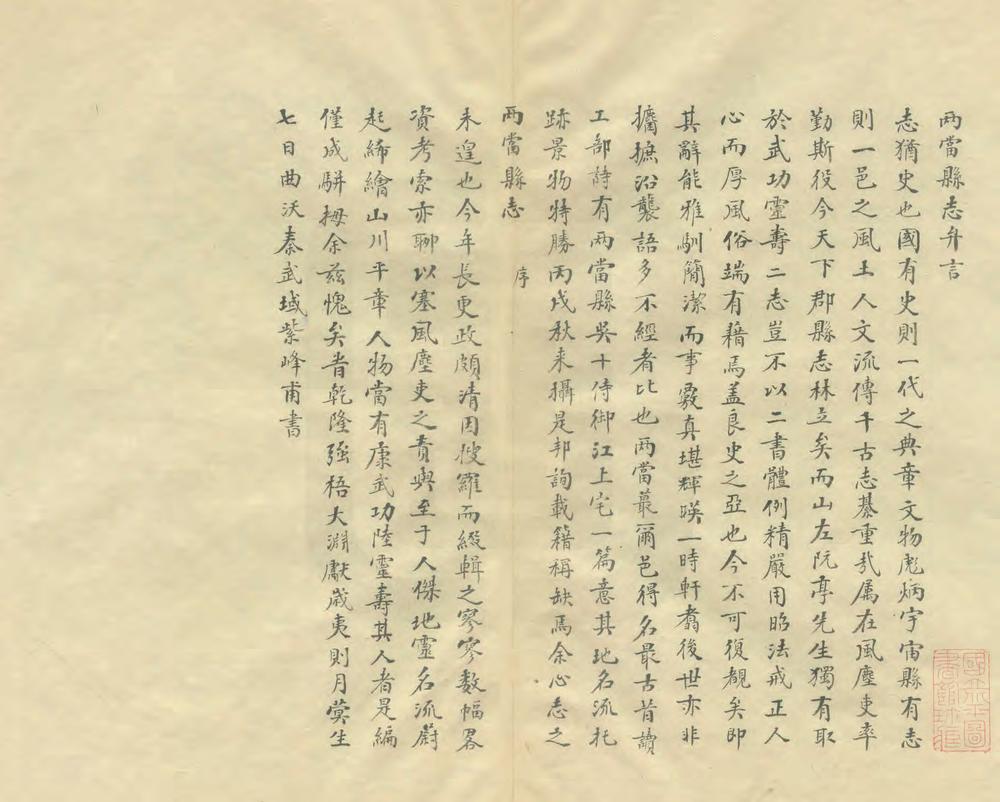 两當縣志弁言
志猶史也國有史則一代之典章文物彪炳宇宙縣有志
則一邑之風土人文流傳千古志綦重哉属在風塵吏率
勤斯役今天下郡縣志林立矣而山左阮亭先生獨有取
於武功靈壽二志豈不以二書體例精嚴用昭法戒正人
心而厚風俗端有藉焉盖良史之亞也今不可復覩矣即
其辭能雅馴簡潔而事覈真堪輝暎一時軒翥後世亦非
攟摭沿襲語多不經者比也两當蕞爾邑得名最古昔讀
工部詩有两當縣吳十侍御江上宅一篇意其地名流托
跡景物特勝丙戌秋来攝是邦詢載籍稱缺焉余心志之
两當縣志 序
未遑也今年長吏政頗清因搜羅而綴輯之寥寥数幅畧
資考索亦聊以塞風塵吏之責與至于人傑地靈名流蔚
起締繪山川平章人物當有康武功陸靈壽其人者是編
僅成駢拇余兹愧矣旹乾隆强梧大淵獻歲夷則月蓂生
七日曲沃秦武域紫峰甫書